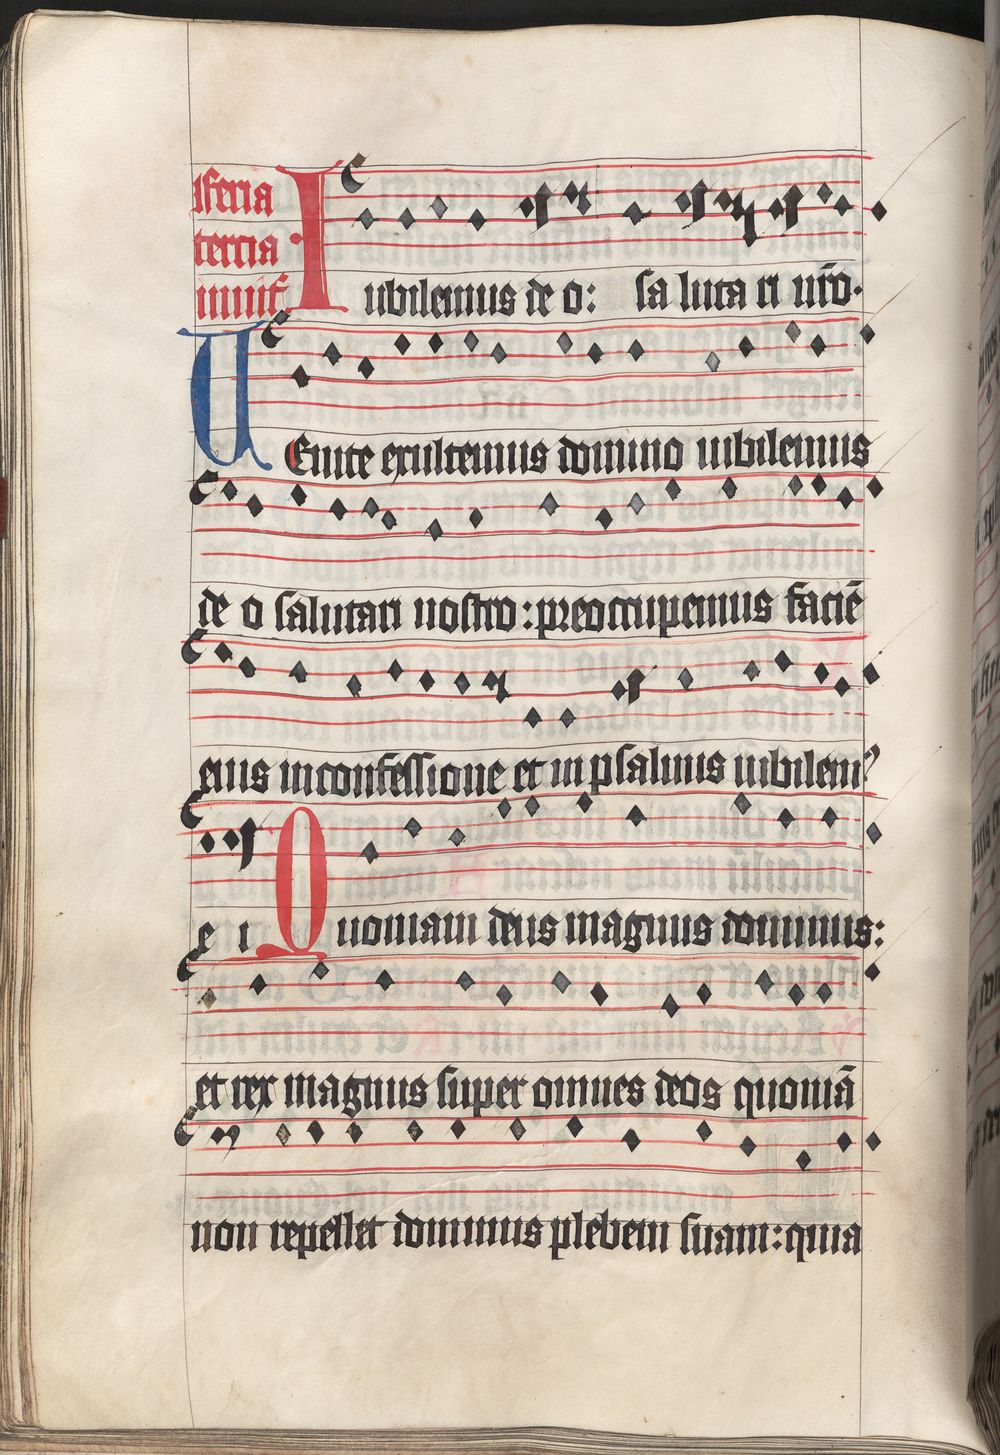 feria
tercia
inuit̄.
Iubilemus de o: sa luta ri nr̄o.
UEnite exultemus domino iubilemus
de o salutari nostro: preoccupemus faciē
eius in confessione et in psalmis iubilem⁹
e i Quoniam deus magnus dominus:
et rex magnus super omnes deos quoniā
non repellet dominus plebem suam: quia